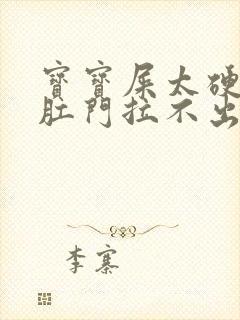 寶寶屎太硬
肛門拉不出
李寨